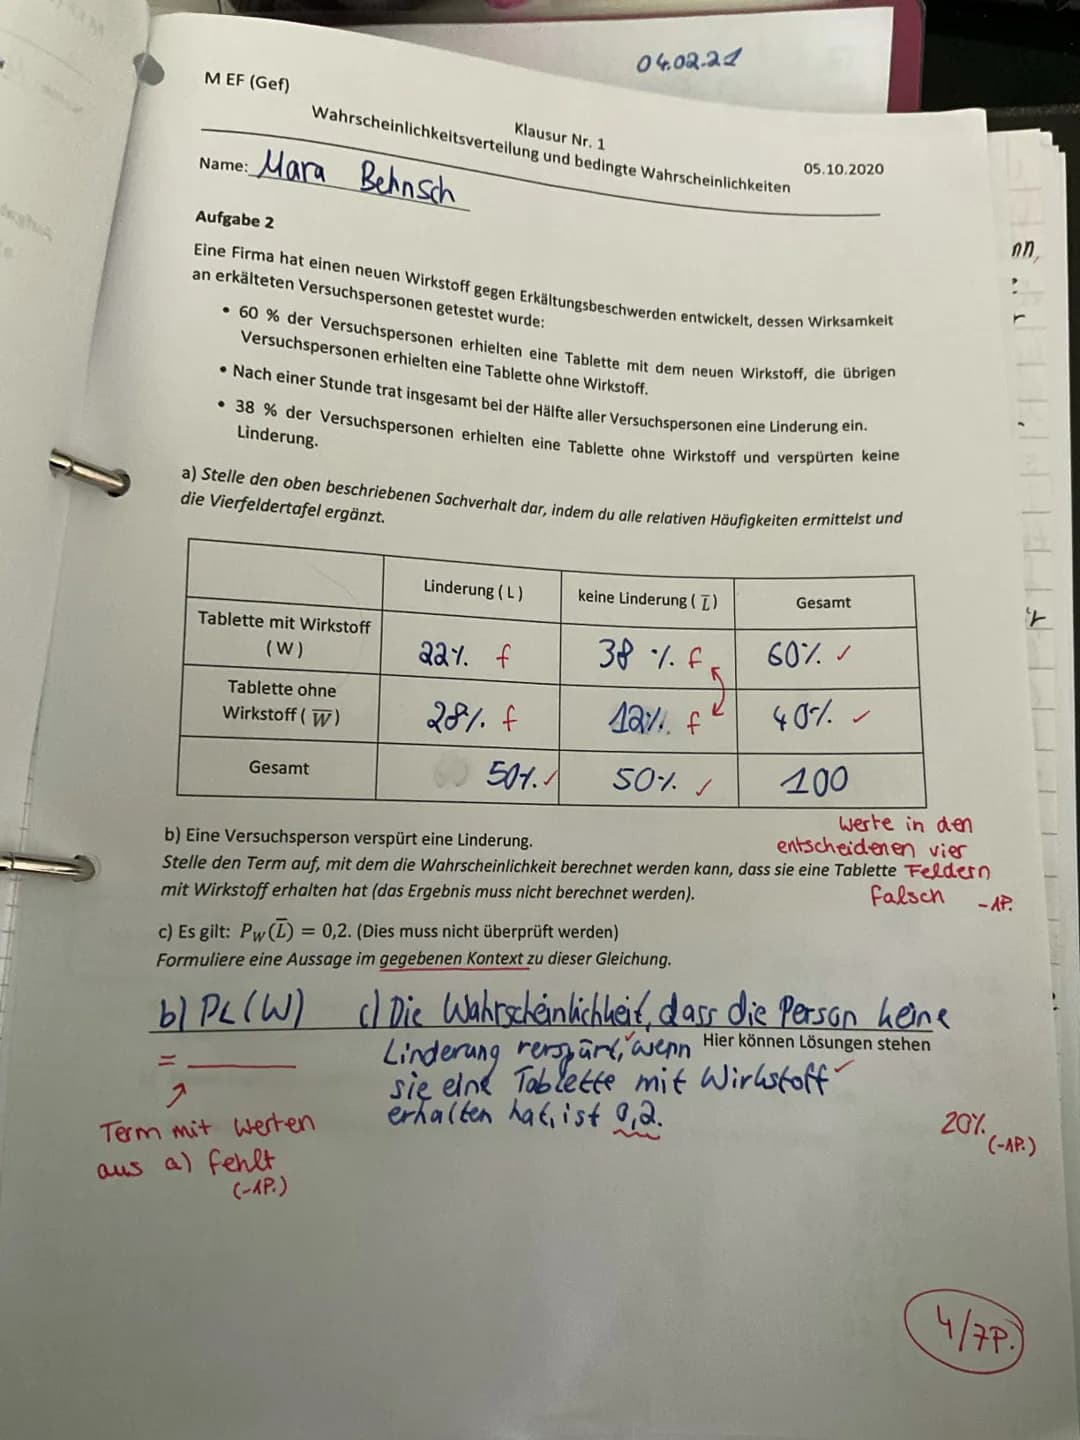 04.02.21
M EF (Gef)
Klausur Nr. 1
05.10.2020
Wahrscheinlichkeitsverteilung und bedingte Wahrscheinlichkeiten
Name: Mara Behnsch
Aufgabe 2
Eine Firma hat einen neuen Wirkstoff gegen Erkältungsbeschwerden entwickelt, dessen Wirksamkeit
an erkälteten Versuchspersonen getestet wurde:
• 60 % der Versuchspersonen erhielten eine Tablette mit dem neuen Wirkstoff, die übrigen
Versuchspersonen erhielten eine Tablette ohne Wirkstoff.
• Nach einer Stunde trat insgesamt bei der Hälfte aller Versuchspersonen eine Linderung ein.
• 38 % der Versuchspersonen erhielten eine Tablette ohne Wirkstoff und verspürten keine
Linderung.
a) Stelle den oben beschriebenen Sachverhalt dar, indem du alle relativen Häufigkeiten ermittelst und
die Vierfeldertafel ergänzt.
Linderung ( L ) keine Linderung ( L̅ ) Gesamt
Tablette mit Wirkstoff
( W )
22% f 38 % f 60% ✓
Tablette ohne
Wirkstoff ( W̅ )
28% f 12% f 40% ✓
Gesamt 50% ✓ 50% ✓ 100
Werte in den
entscheidenen vier
Feldern
falsch -1P.
b) Eine Versuchsperson verspürt eine Linderung.
Stelle den Term auf, mit dem die Wahrscheinlichkeit berechnet werden kann, dass sie eine Tablette
mit Wirkstoff erhalten hat (das Ergebnis muss nicht berechnet werden).
c) Es gilt: P_W(L̅) = 0,2. (Dies muss nicht überprüft werden)
Formuliere eine Aussage im gegebenen Kontext zu dieser Gleichung.
b) PL(W) c) Die Wahrscheinlichkeit, dass die Person keine
Hier können Lösungen stehen
Linderung verspürt, ✓ wenn
sie eine Tablette mit Wirkstoff ✓
erhalten hat, ist 0,2.
=
Term mit Werten
aus a) fehlt
(-1P.)
20%
(-1P.)
4/7P.
nn,
r